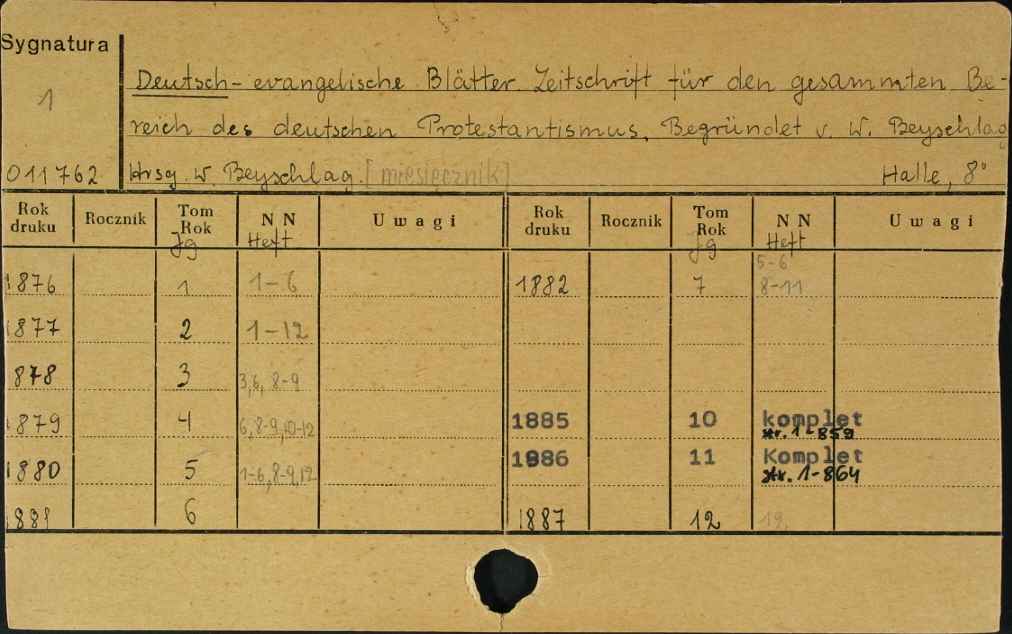 Sygnatura
1
Deutsch-evangelische Blätter Zeitschrift für den gesammten Be-
reich des deutschen Protestantismus. Begründet v. W. Beyschlag
011762 Hrsg. W. Beyschlag. [miesięcznik] Halle, 8°
Rok druku Rocznik Tom Rok Jg NN Heft Uwagi Rok druku Rocznik Tom Rok Jg NN Heft Uwagi
5-6
1876 1 1-6 1882 7 8-11
1877 2 1-12
1878 3 3,6, 8-9
1879 4 6,8-9,10-12 1885 10 komplet
str. 1-859
1880 5 1-6,8-9,12 1986 11 Komplet
str. 1-864
1881 6 1887 12 12.